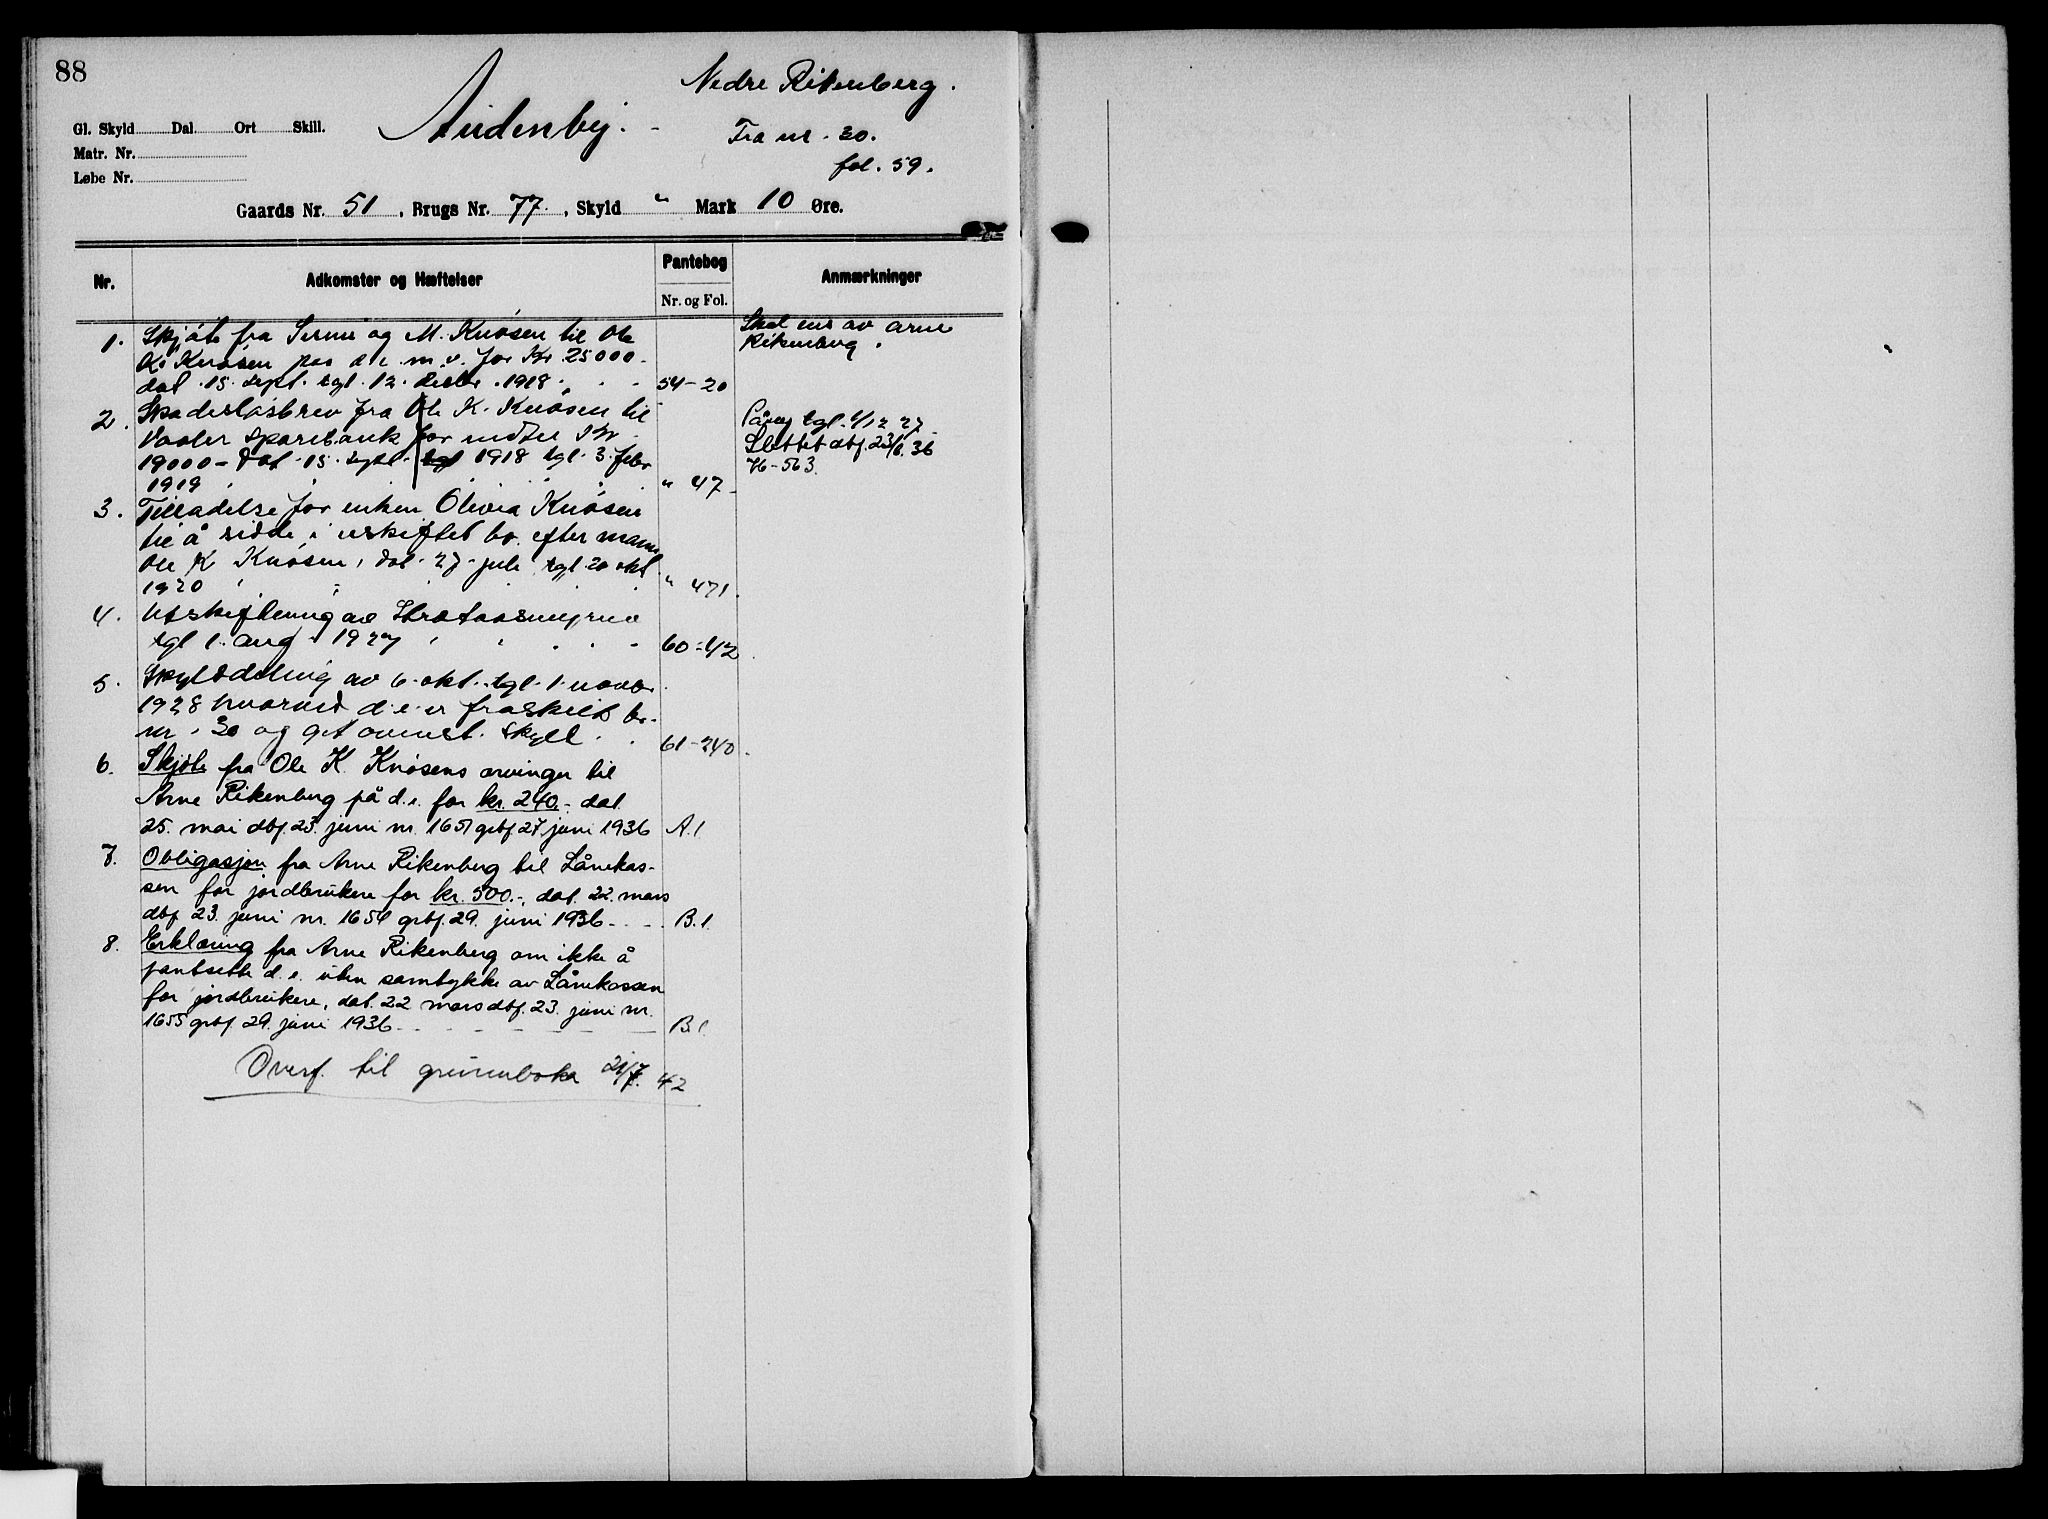 88
Nedre Rikenberg.
Gl. Skyld Dal. Ort Skill.
Fra nr. 30.
Matr. Nr.
fol. 59.
Løbe Nr.
Gaards Nr. 51, Brugs Nr. 77, Skyld " Mark 10 Øre.
Nr. Adkomster og Hæftelser Pantebog Anmærkninger
Nr. og Fol.
1. Skjøte fra og M. Knøsen til Ole
K. Knøsen paa d.e. m.v. for Kr. 25000-
dat. 15. sept. tgl. 12. 1918. 54-20
Skal eies av Arne
Rikenberg.
2. Skadesløsbrev fra Ole K. Knøsen til
Vaaler Sparebank for indtil Kr.
19000- dat. 15. sept. tgl 1918 tgl. 3. febr
1919 " 47-
tgl. 6/12 27
Slettet dbf. 23/6. 36
76-563.
3. Tilladelse for enken Olivia Knøsen
til å sidde i uskiftet bo efter mann
Ole K Knøsen, dat. 27. juli tgl. 20 okt
1920 " 471.
4. Utskiftning av
tgl 1. aug 1927 60-42
5. Skylddeling av 6. okt. tgl. 1. novbr
1928 hvorved d.e. er fraskilt br.
nr. 30 og git ovenst. skyld. 61-240.
6. Skjøte fra Ole K. Knøsens arvinger til
Arne Rikenberg på d.e. for kr. 240.- dat.
25. mai dbf. 23. juni nr. 1651 grbf. 27. juni 1936 A.1
7. Obligasjon fra Arne Rikenberg til Lånekas-
sen for jordbrukere for kr. 500.-, dat. 22. mars
dbf 23. juni nr. 1654 grbf. 29. juni 1936 - - - B.1.
8. Erklæring fra Arne Rikenberg om ikke å
pantsette d.e. uten samtykke av Lånekassen
for jordbrukere, dat. 22 mars dbf. 23. juni nr.
1655 grbf. 29. juni 1936 - - - - - - B.1
Overf. til grunnboka 21/7. 42